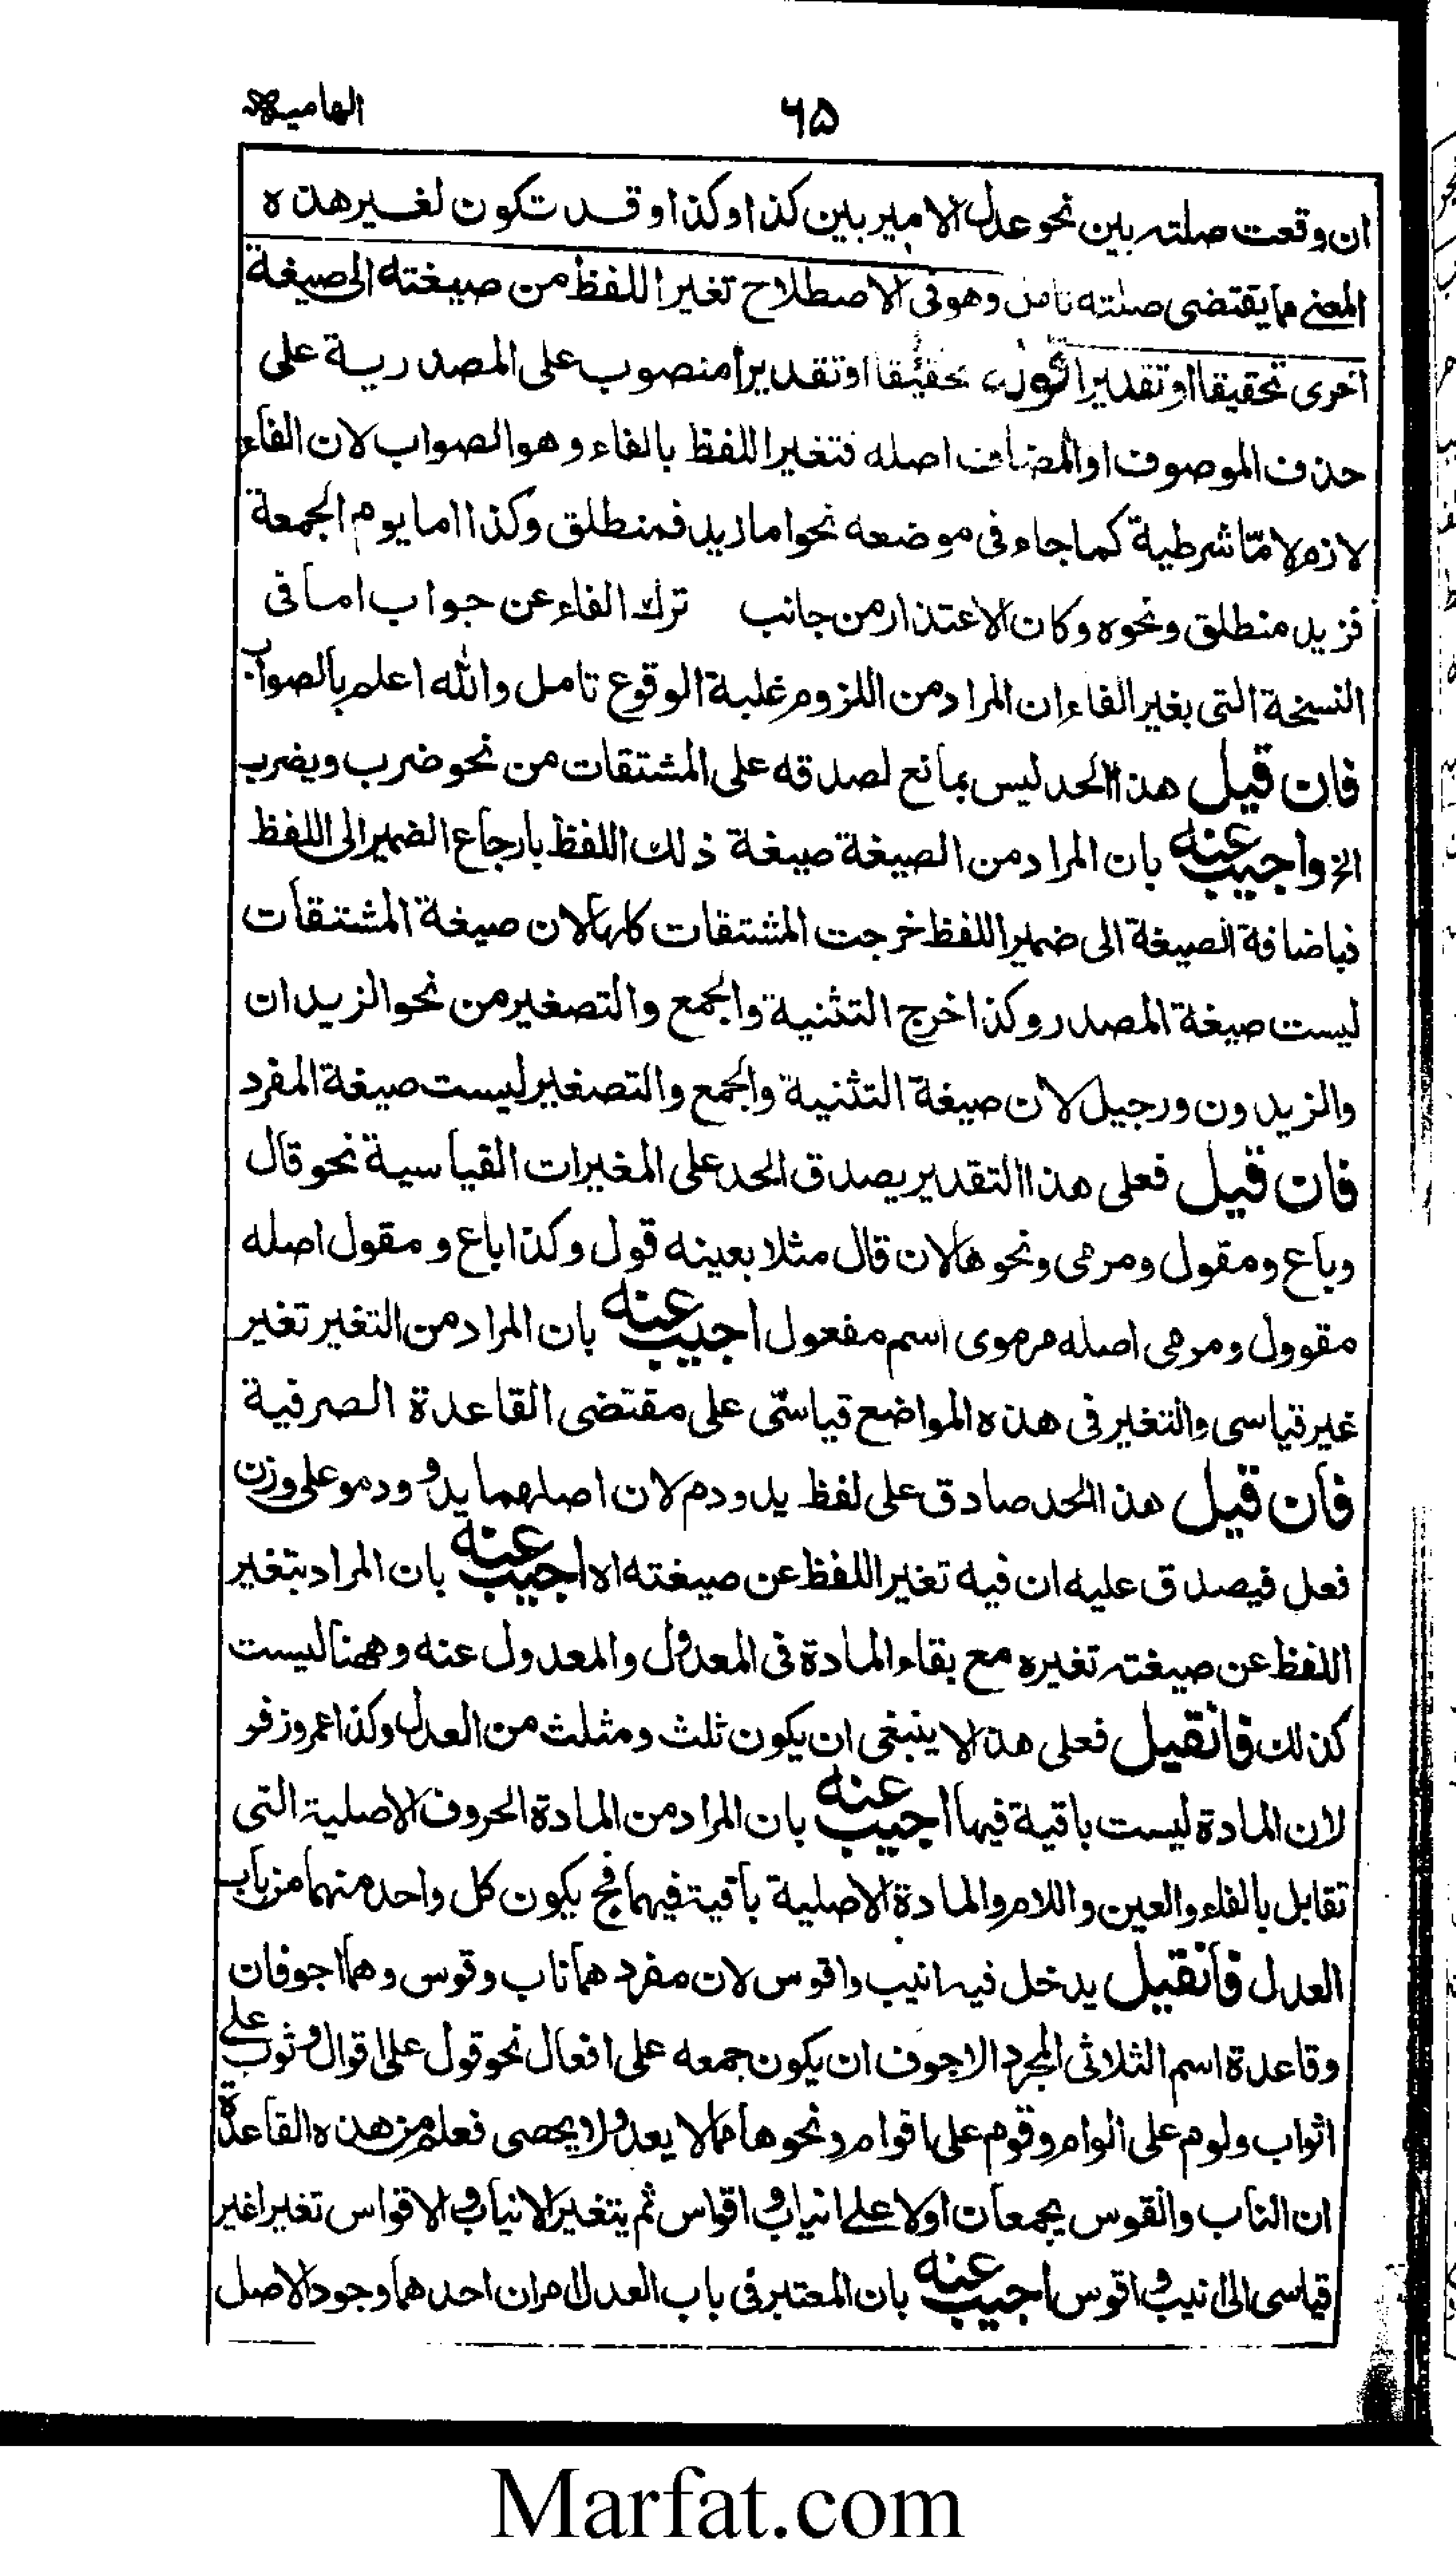 الهاميه
۶۵
ان وقعت صلته بين نحو عدل الامير بين كذا وكذا وقد تكون لغير هذه
المعنى مما يقتضى صلته تامل وهو فى الاصطلاح تغير اللفظ من صيغته الى صيغة
اخرى تحقيقا او تقديرا قوله تحقيقا او تقديرا منصوب على المصدرية على
حذف الموصوف او المضاف اصله فتغير اللفظ بالفاء وهو الصواب لان الفاء
لازم لامّا شرطية كما جاء فى موضعه نحو اما زيد فمنطلق وكذا اما يوم الجمعة
فزيد منطلق ونحوه وكان الاعتذار من جانب ترك الفاء عن جواب اما فى
النسخة التى بغير الفاء ان المراد من اللزوم غلبة الوقوع تامل والله اعلم بالصواب
فان قيل هذا الحد ليس بمانع لصدقه على المشتقات من نحو ضرب ويضرب
الخ واجيب عنه بان المراد من الصيغة صيغة ذلك اللفظ بارجاع الضمير الى اللفظ
فباضافة الصيغة الى ضمير اللفظ خرجت المشتقات كلها لان صيغة المشتقات
ليست صيغة المصدر وكذا اخرج التثنية والجمع والتصغير من نحو الزيدان
والزيدون ورجيل لان صيغة التثنية والجمع والتصغير ليست صيغة المفرد
فان قيل فعلى هذا التقدير يصدق الحد على المغيرات القياسية نحو قال
وباع ومقول ومرمى ونحوها لان قال مثلا بعينه قول وكذا باع و مقول اصله
مقوول ومرمى اصله مرموى اسم مفعول اجيب عنه بان المراد من التغير تغير
غير قياسى والتغير فى هذه المواضع قياسّى على مقتضى القاعدة الصرفية
فان قيل هذا الحد صادق على لفظ يد ودم لان اصلهما يدو ودمو على وزن
فعل فيصدق عليه ان فيه تغير اللفظ عن صيغته اه اجيب عنه بان المراد بتغير
اللفظ عن صيغته تغيره مع بقاء المادة فى المعدول والمعدول عنه وههنا ليست
كذلك فانقيل فعلى هذا لا ينبغى ان يكون ثلث ومثلث من العدل وكذا عمر وزفر
لان المادة ليست باقية فيها اجيب عنه بان المراد من المادة الحروف الاصلية التى
تقابل بالفاء والعين واللام والمادة الاصلية باقية فيهما فح يكون كل واحد منهما من باب
العدل فانقيل يدخل فيه انيب واقوس لان مفردهما ناب وقوس وهما اجوفان
وقاعدة اسم الثلاثى المجرد الاجوف ان يكون جمعه على افعال نحو قول على اقوال وثوب على
اثواب ولوم على الوام وقوم على اقوام ونحوها مما لا يعد ولا يحصى فعلم من هذه القاعدة
ان الناب والقوس يجمعان اولا على انياب و اقواس ثم يتغير الانياب و الاقواس تغيرا غير
قياسى الى انيب و اقوس اجيب عنه بان المعتبر فى باب العدل امران احدهما وجود الاصل
Marfat.com